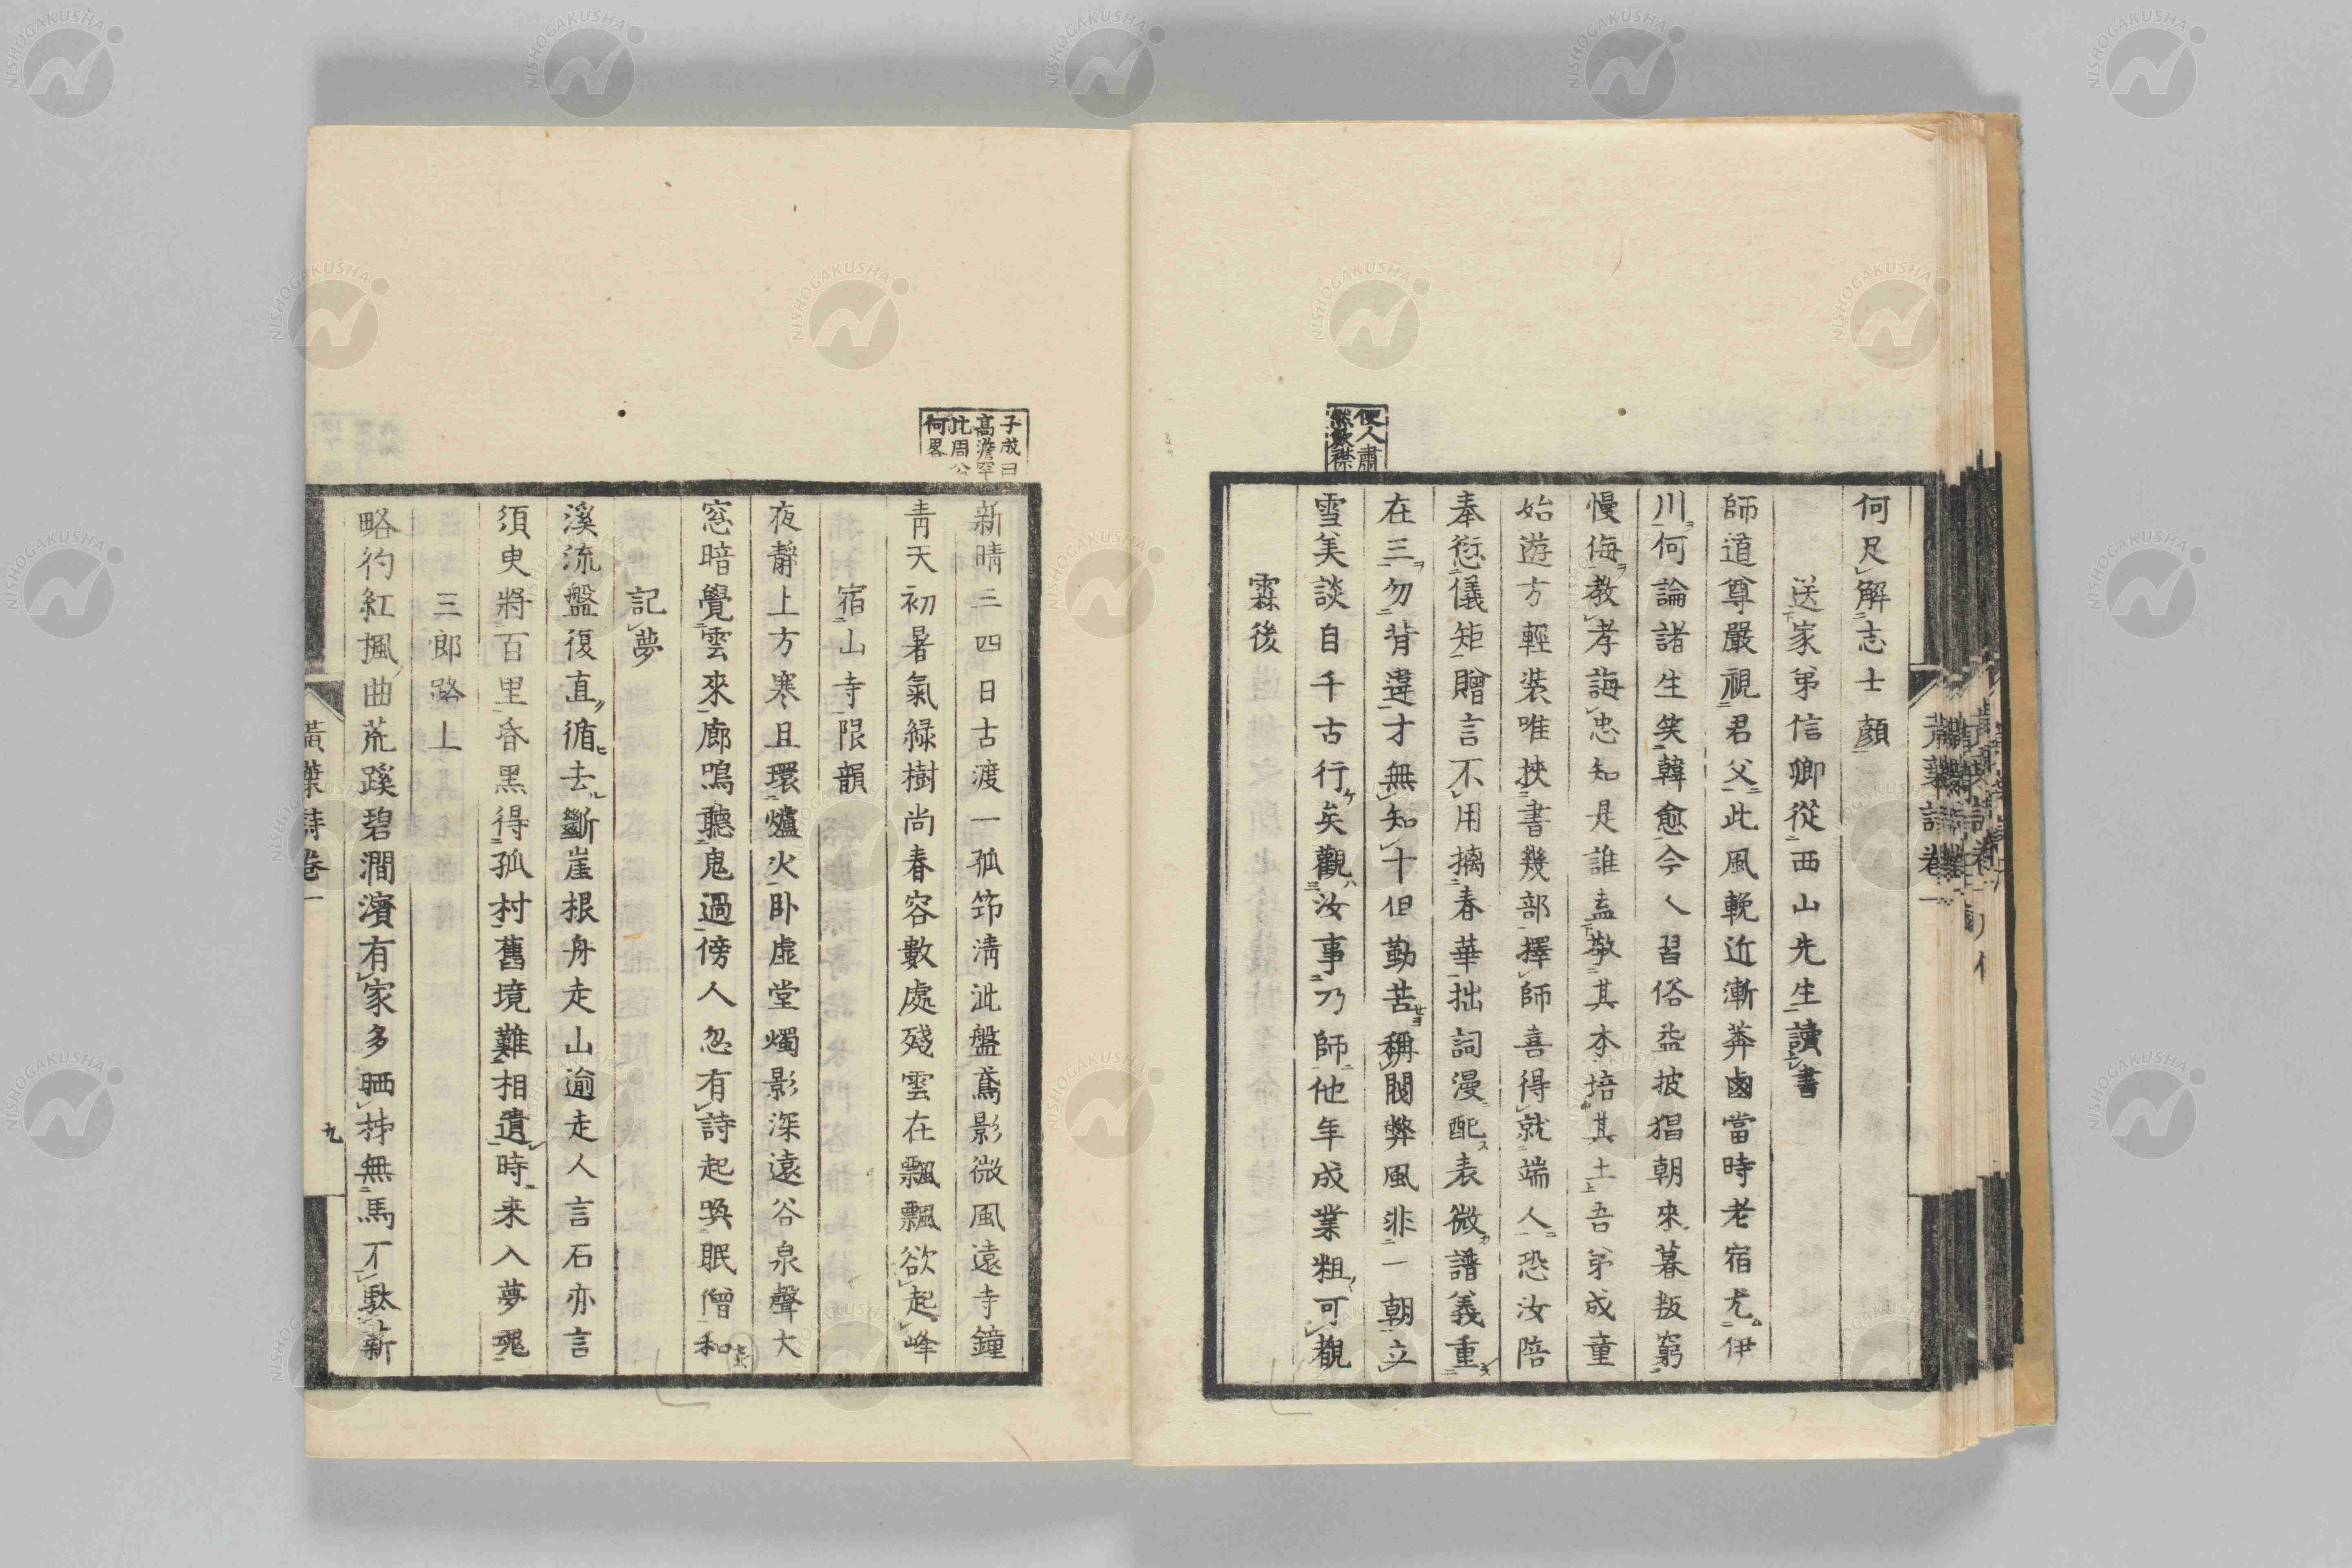 何足解志士顏
送家弟信卿從西山先生讀書
師道尊嚴視君父此風輓近漸莾鹵當時老宿尤伊
川何論諸生笑韓愈今人習俗益披猖朝來暮叛窮
慢侮教孝誨忠知是誰盍敬其本培其土吾弟成童
始遊方輕裝唯挾書幾部擇師喜得就端人恐汝陪
奉愆儀矩贈言不用摛春華拙詞漫配表微譜義重
在三勿背違才無知十但勤苦稱閥弊風非一朝立
雪美談自千古行矣觀汝事乃師他年成業粗可觀
霖後
使人肅
然斂襟
新晴三四日古渡一孤笻淸泚盤鳶影微風遠寺鐘
青天初暑氣緑樹尚春容數處殘雲在飄飄欲起峰
宿山寺限韻
夜靜上方寒且環爐火卧虛堂燭影深遠谷泉聲大
窓暗覺雲來廊鳴聽鬼過傍人忽有詩起喚眠僧和
記夢
溪流盤復直循去斷崖根舟走山逾走人言石亦言
須臾將百里昏黑得孤村舊境難相遺時来入夢魂
三郎路上
略彴紅楓曲荒蹊碧澗濱有家多晒柹無馬不馱薪
子成曰
高澹罕
比周公
何畧
黃葉詩卷一
九
NISHOGAKUSHA